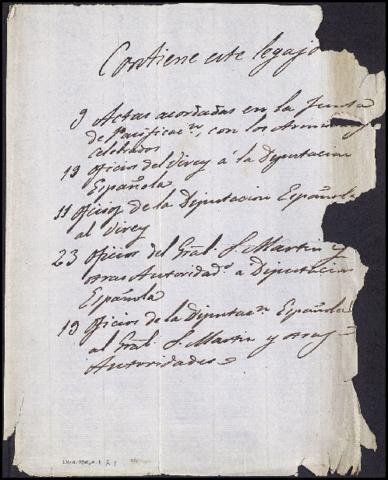 Contiene este legajo
9 Actas acordadas en la Junta
de Pacificac.n, con los
celebrados
19 oficios del Virey á la Diputacion
Española
11 oficios de la Diputacion Española
al Virey
23 oficios del Gral. S. Martin y
otras Autoridad.s a Diputacion
Española
19 oficios de la Diputac.n Española
al Gral. S. Martin y otras
Autoridades